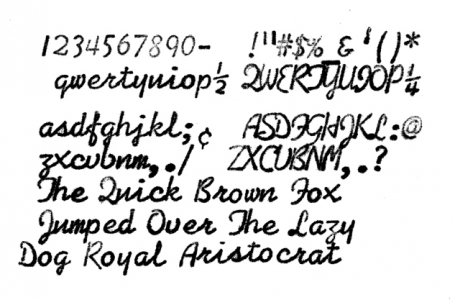 1234567890- !"#$% & '()*
qwertyuiop½ QWERTYUIOP¼
asdfghjkl;¢ ASDFGHJKL:@
zxcvbnm,./ ZXCVBNM,.?
The Quick Brown Fox
Jumped Over The Lazy
Dog Royal Aristocrat